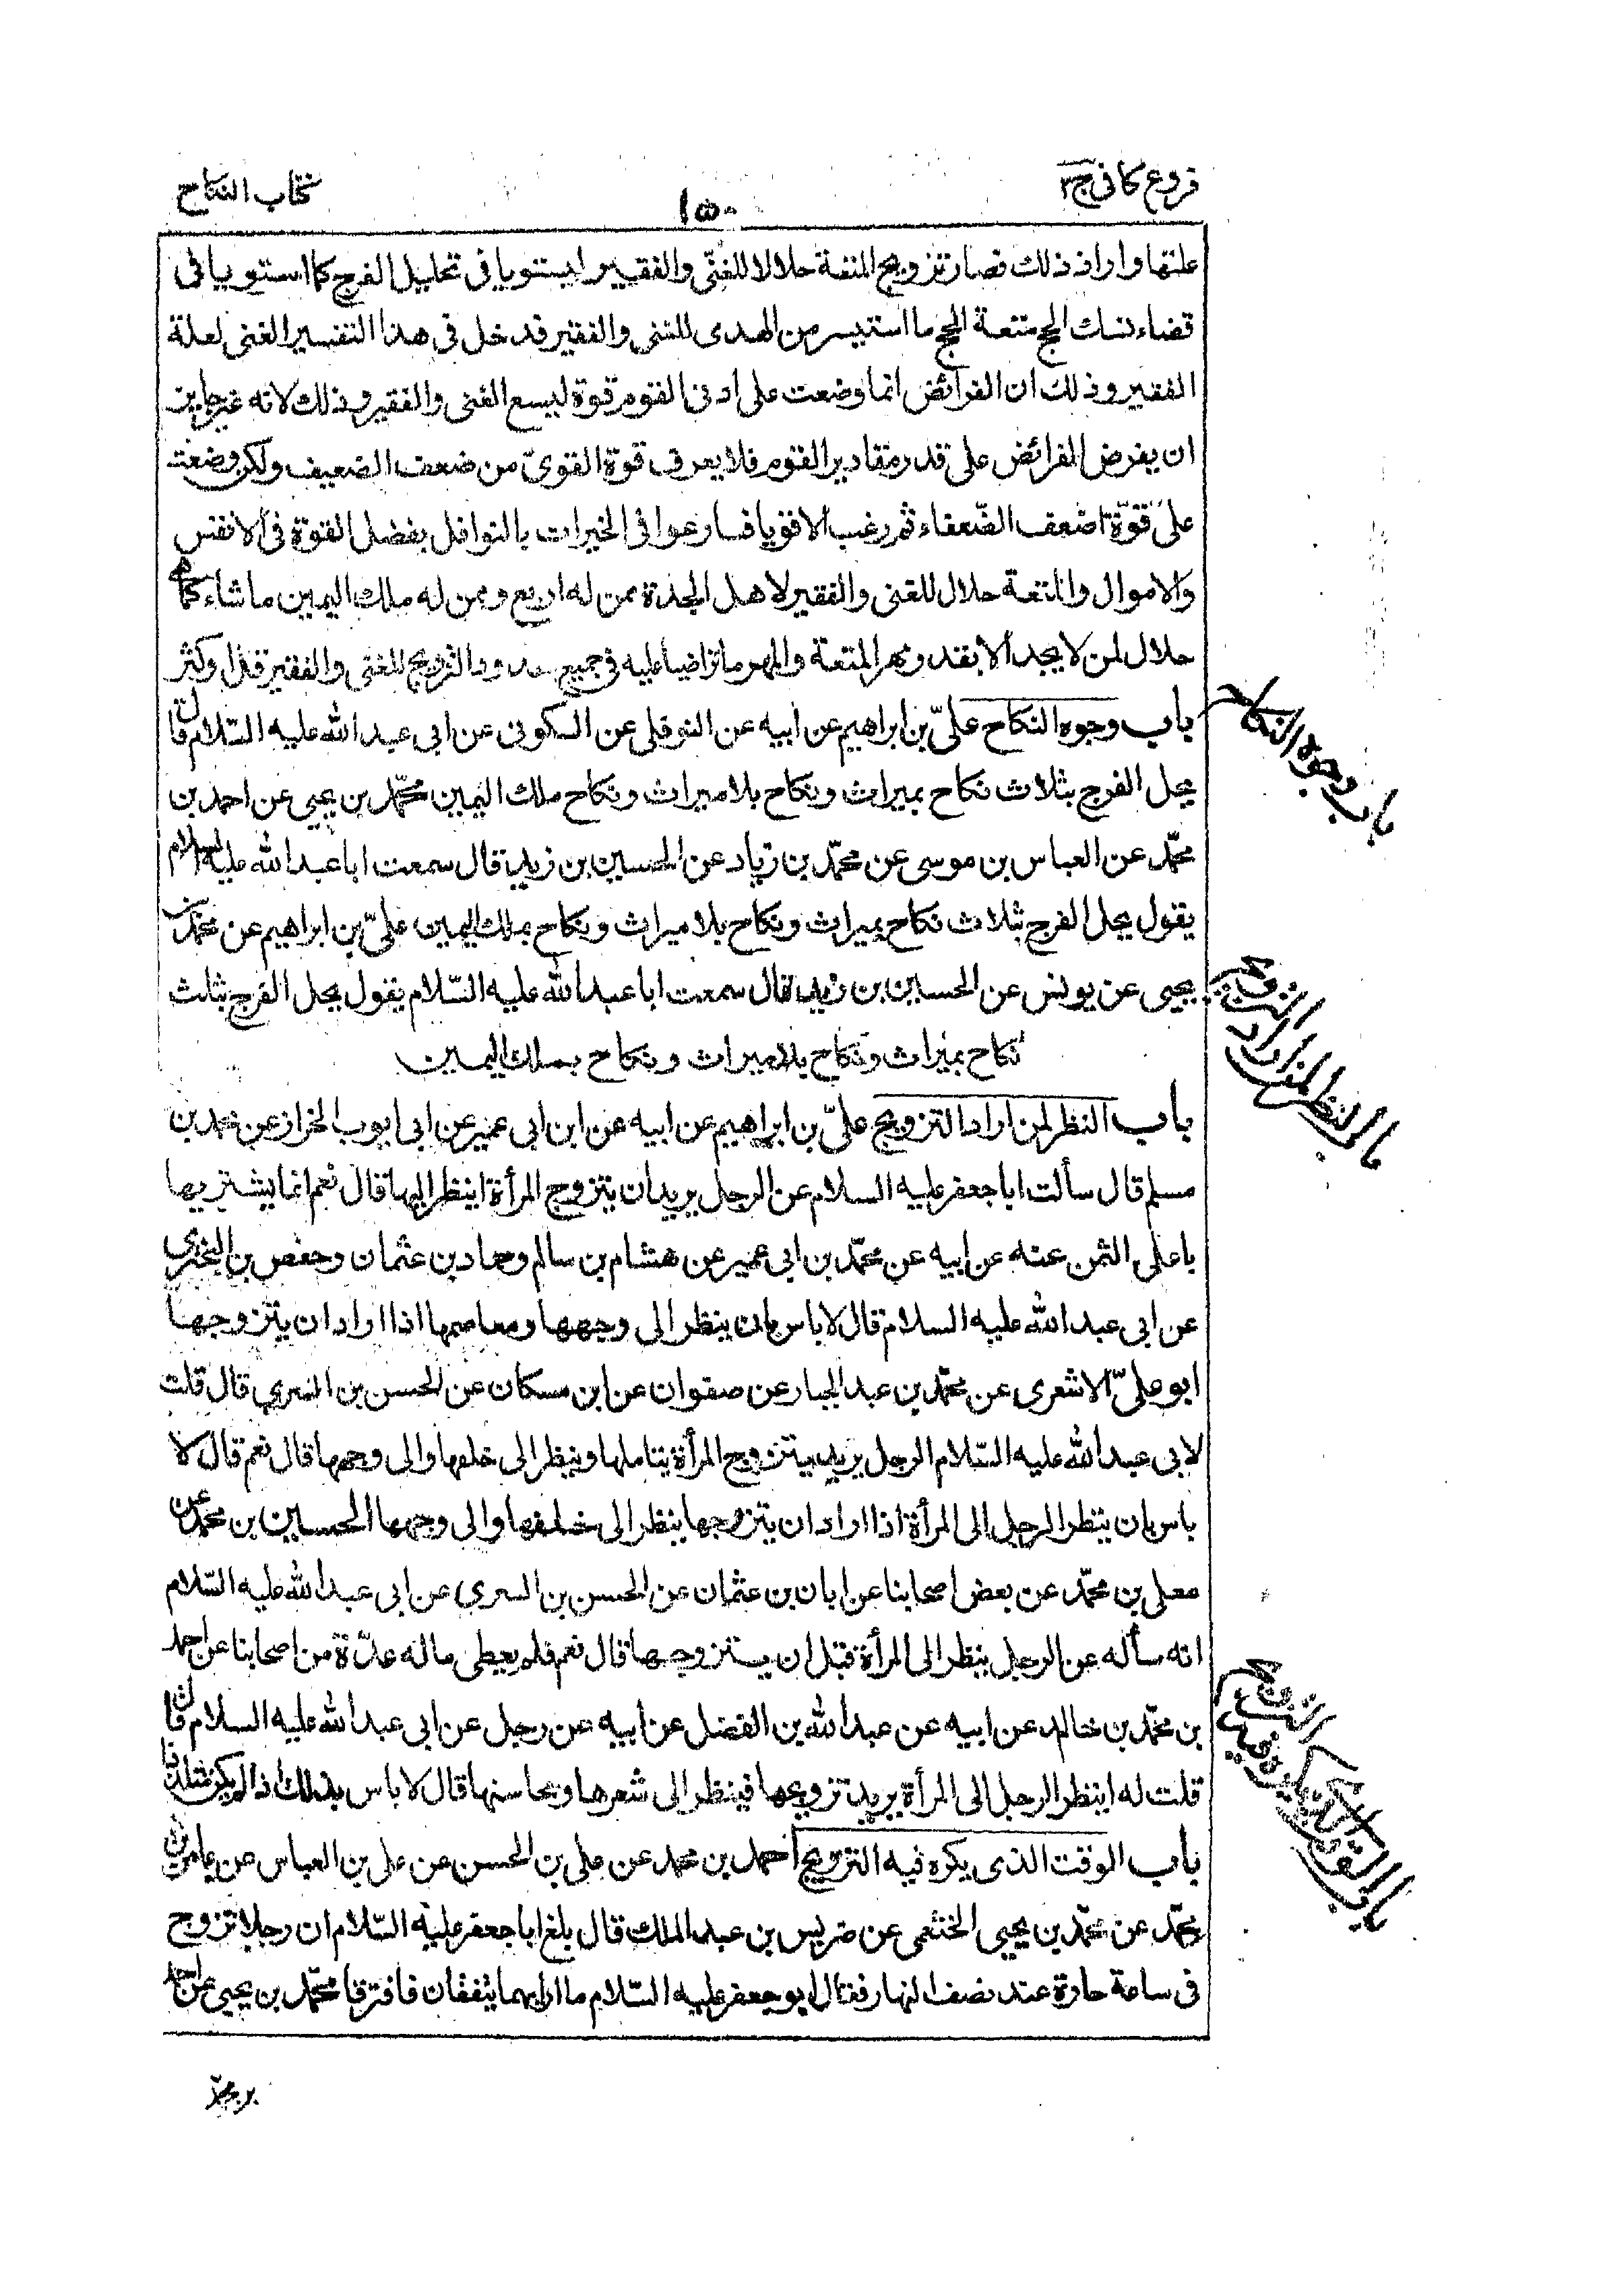 فروع كافى ج٣
١٥٠
كتاب النكاح
علتها واراد ذلك فصار تزويج المتعة حلالا للغنى والفقير ليستويا فى تحليل الفرج كما استويا فى
قضاء نسك الحج متعة الحج ما استيسر من الهدى للغنى والفقير فدخل فى هذا التفسير الغنى لعلة
الفقير وذلك ان الفرائض انما وضعت على ادنى القوم قوة ليسع الغنى والفقير وذلك لانه غير جايز
ان يفرض الفرائض على قدر مقادير القوم فلا يعرف قوة القوىّ من ضعف الضعيف ولكن وضعت
على قوّة اضعف الضّعفاء ثم رغب الاقويا فسارعوا فى الخيرات بالنوافل بفضل القوة فى الانفس
والاموال والمتعة حلال للغنى والفقير لاهل الجدة ممن له اربع وممن له ملك اليمين ما شاء كما هى
حلال لمن لا يجد الا بقدر مهر المتعة والمهر ما تراضيا عليه فى جميع حدود التزويج للغنى والفقير قل او كثر
باب وجوه النكاح علىّ بن ابراهيم عن ابيه عن النوفلى عن السكونى عن ابى عبد الله عليه السّلام قال
يحل الفرج بثلاث نكاح بميراث ونكاح بلا ميراث ونكاح ملك اليمين محمّد بن يحيى عن احمد بن
محمّد عن العباس بن موسى عن محمّد بن زياد عن الحسين بن زيد قال سمعت ابا عبد الله عليه السلام
يقول يحل الفرج بثلاث نكاح بميراث ونكاح بلا ميراث ونكاح بملك اليمين علىّ بن ابراهيم عن محمد بن
يحيى عن يونس عن الحسين بن زيد قال سمعت ابا عبد الله عليه السّلام يقول يحل الفرج بثلث
نكاح بميراث ونكاح بلا ميراث ونكاح بملك اليمين
باب النظر لمن اراد التزويج علىّ بن ابراهيم عن ابيه عن ابن ابى عمير عن ابى ايوب الخراز عن محمد بن
مسلم قال سألت ابا جعفر عليه السلام عن الرجل يريد ان يتزوج المرأة اينظر اليها قال نعم انما يشتريها
باعلى الثمن عنه عن ابيه عن محمّد بن ابى عمير عن هشام بن سالم وحماد بن عثمان وحفص بن البخترى
عن ابى عبد الله عليه السلام قال لا باس بان ينظر الى وجهها ومعاصمها اذا اراد ان يتزوجها
ابو علىّ الاشعرى عن محمّد بن عبد الجبار عن صفوان عن ابن مسكان عن الحسن بن السري قال قلت
لابى عبد الله عليه السّلام الرجل يريد يتزوج المرأة يتاملها وينظر الى خلفها والى وجهها قال نعم قال لا
باس بان ينظر الرجل الى المرأة اذا اراد ان يتزوجها ينظر الى خلفها والى وجهها الحسين بن محمد عن
معلى بن محمّد عن بعض اصحابنا عن ابان بن عثمان عن الحسن بن السري عن ابى عبد الله عليه السّلام
انه سأله عن الرجل ينظر الى المرأة قبل ان يتزوجها قال نعم فلم يعطى ماله عدّة من اصحابنا عن احمد
بن محمّد بن خالد عن ابيه عن عبد الله بن الفضل عن ابيه عن رجل عن ابى عبد الله عليه السلام قال
قلت له اينظر الرجل الى المرأة يريد تزويجها فينظر الى شعرها ومحاسنها قال لا باس بذلك اذا لم يكن متلذذا
باب الوقت الذى يكره فيه التزويج احمد بن محمد عن على بن الحسن عن على بن العباس عن
محمّد عن محمّد بن يحيى الخثعمى عن ضريس بن عبد الملك قال بلغ ابا جعفر عليه السّلام ان رجلا تزوج
فى ساعة حارة عند نصف النهار فقال ابو جعفر عليه السّلام ما اراهما يتفقان فافترقا محمّد بن يحيى عن احمد
باب وجوه النكاح
باب النظر لمن اراد التزويج
باب الوقت الذى يكره فيه التزويج
بن محمّد